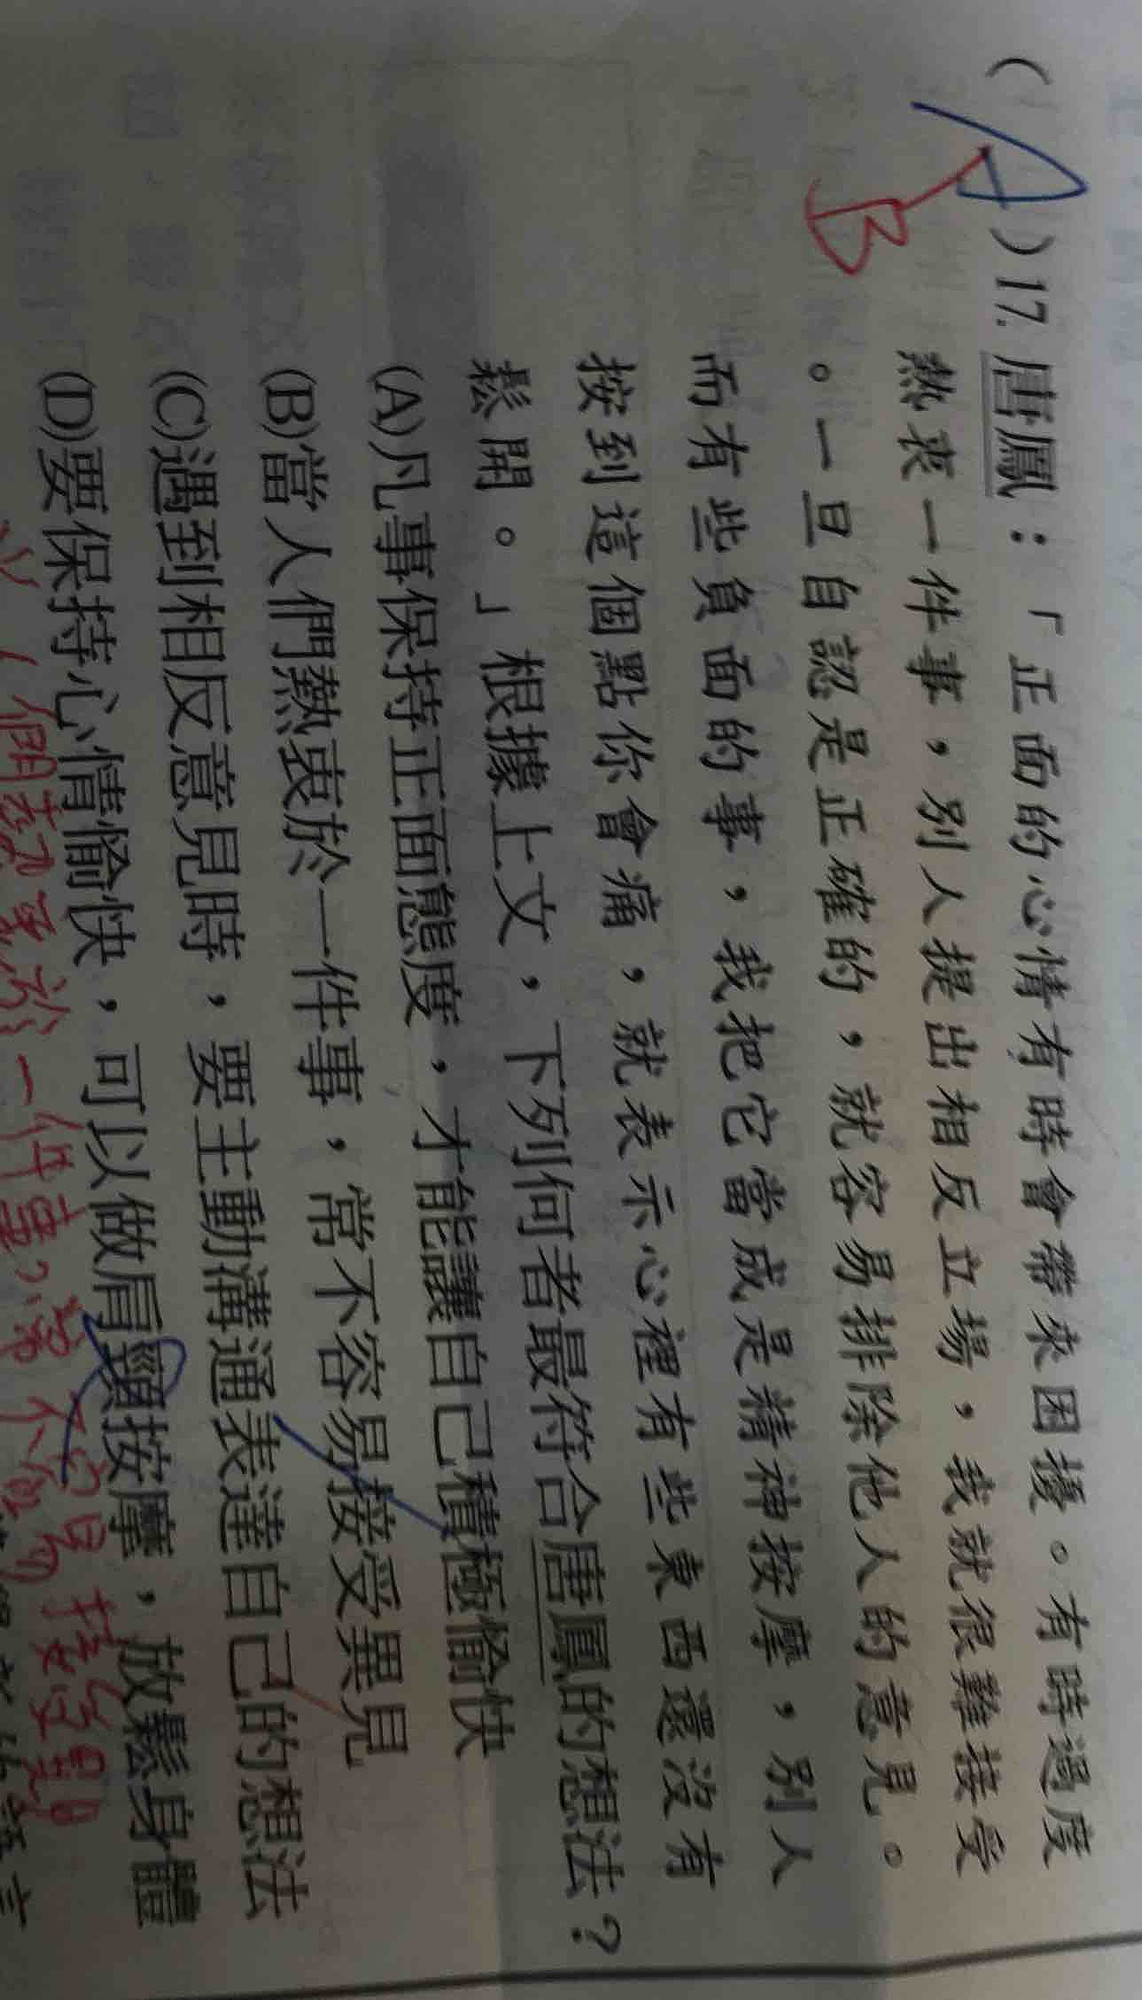 (A)17. 唐鳳：「正面的心情有時會帶來困擾。有時過度
B
熱衷一件事，別人提出相反立場，我就很難接受
。一旦自認是正確的，就容易排除他人的意見。
而有些負面的事，我把它當成是精神按摩，別人
按到這個點你會痛，就表示心裡有些東西還沒有
鬆開。」根據上文，下列何者最符合唐鳳的想法？
(A)凡事保持正面態度，才能讓自己積極愉快
(B)當人們熱衷於一件事，常不容易接受異見
(C)遇到相反意見時，要主動溝通表達自己的想法
(D)要保持心情愉快，可以做肩頸按摩，放鬆身體
人們熱衷於一件事，常不容易接受異